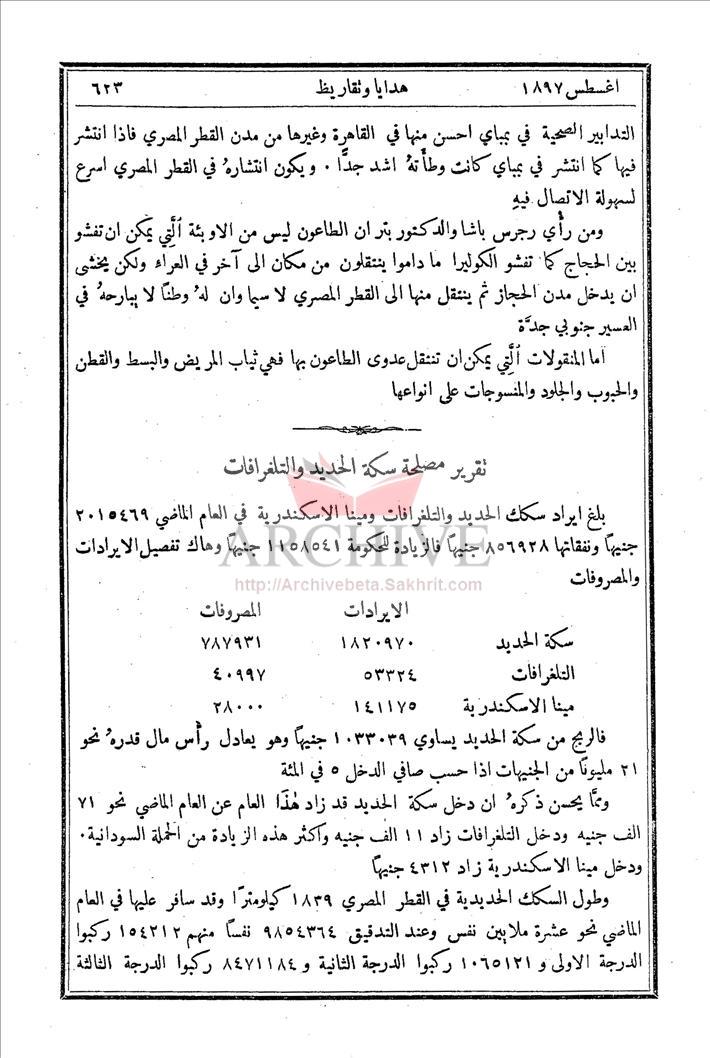 اغسطس ١٨٩٧ هدايا وتقاريظ ٦٢٣
التدابير الصحية في بمباي احسن منها في القاهرة وغيرها من مدن القطر المصري فاذا انتشر
فيها كما انتشر في بمباي كانت وطأَتهُ اشد جدًّا ٠ ويكون انتشارهُ في القطر المصري اسرع
لسهولة الاتصال فيهِ
ومن رأْي رجرس باشا والدكتور بتر ان الطاعون ليس من الاوبئة الَّتِي يمكن ان تفشو
بين الحجاج كما تفشو الكوليرا ما داموا ينتقلون من مكان الى آخر في العراء ولكن يخشى
ان يدخل مدن الحجاز ثم ينتقل منها الى القطر المصري لا سيما وان لهُ وطنًا لا يبارحهُ في
العسير جنوبي جدَّة
اما المنقولات الَّتِي يمكن ان تنتقل عدوى الطاعون بها فهي ثياب المريض والبسط والقطن
والحبوب والجلود والمنسوجات على انواعها
تقرير مصلحة سكة الحديد والتلغرافات
بلغ ايراد سكك الحديد والتلغرافات ومينا الاسكندرية في العام الماضي ٢٠١٥٤٦٩
جنيهًا ونفقاتها ٨٥٦٩٢٨ جنيهًا فالزيادة للحكومة ١١٥٨٥٤١ جنيهًا وهاك تفصيل الايرادات
والمصروفات
ARCHIVE
http://Archivebeta.Sakhrit.com
الايرادات المصروفات
سكة الحديد ١٨٢٠٩٧٠ ٧٨٧٩٣١
التلغرافات ٥٣٣٢٤ ٤٠٩٩٧
مينا الاسكندرية ١٤١١٧٥ ٢٨٠٠٠
فالربح من سكة الحديد يساوي ١٠٣٣٠٣٩ جنيهًا وهو يعادل رأْس مال قدرهُ نحو
٢١ مليونًا من الجنيهات اذا حسب صافي الدخل ٥ في المئة
وممَّا يحسن ذكرهُ ان دخل سكة الحديد قد زاد هٰذَا العام عن العام الماضي نحو ٧١
الف جنيه ودخل التلغرافات زاد ١١ الف جنيه واكثر هذه الزيادة من الحملة السودانية٠
ودخل مينا الاسكندرية زاد ٤٣١٢ جنيهًا
وطول السكك الحديدية في القطر المصري ١٨٣٩ كيلومترًا وقد سافر عليها في العام
الماضي نحو عشرة ملايين نفس وعند التدقيق ٩٨٥٤٣٦٤ نفسًا منهم ١٥٤٢١٢ ركبوا
الدرجة الاولى و ١٠٦٥١٢١ ركبوا الدرجة الثانية و ٨٤٧١١٨٤ ركبوا الدرجة الثالثة